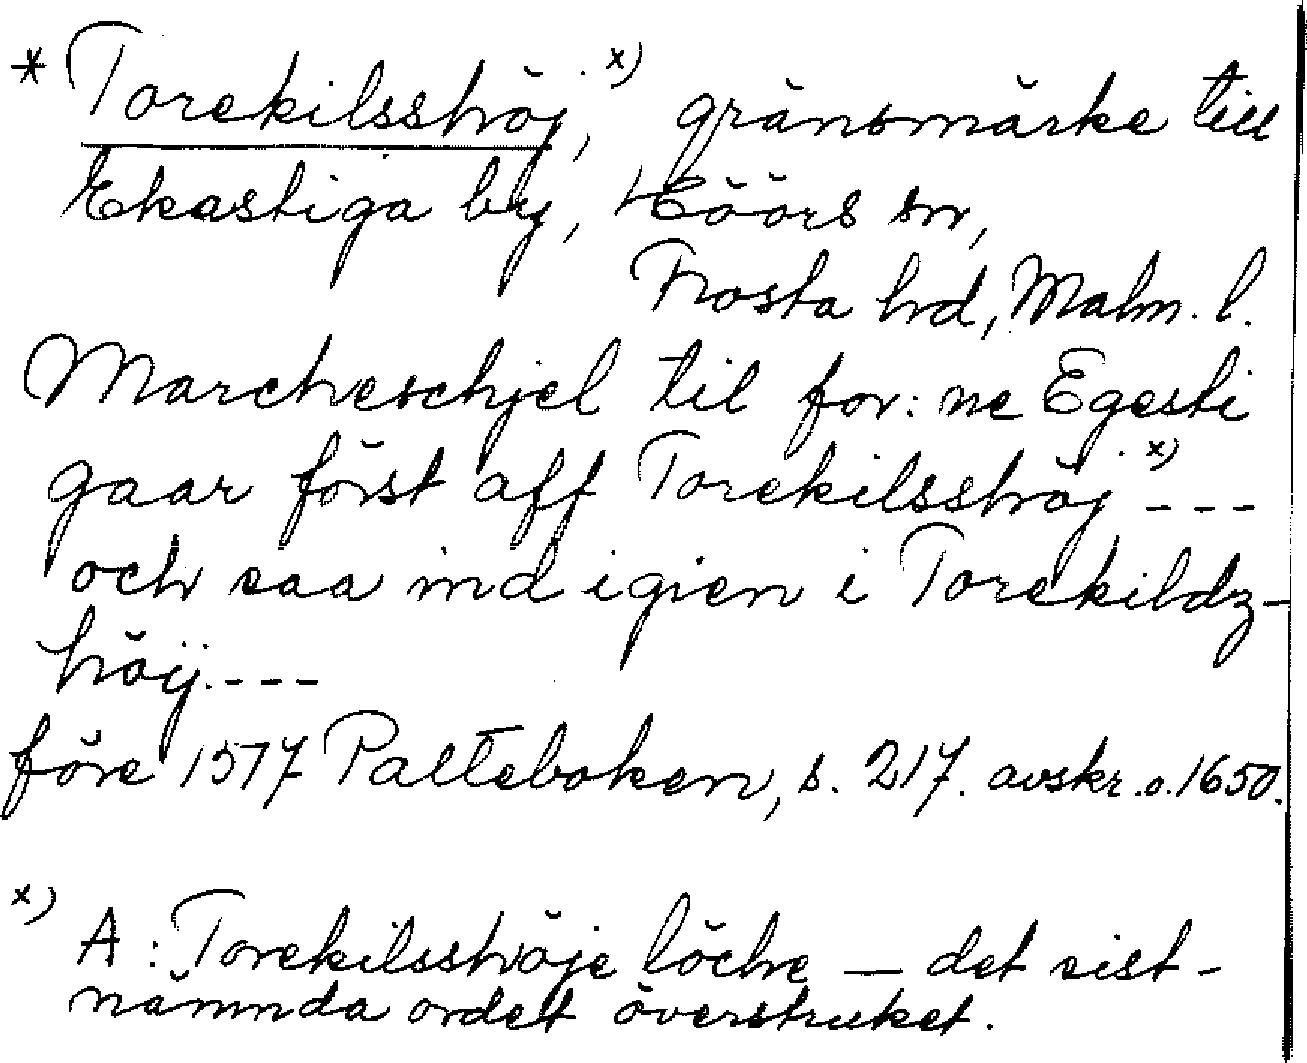 * Torekilsshöj, x) gränsmärke till
Ekastiga by, Höörs sn,
Frosta hd, Malm. l.
Marcheschjel til for:ne Egesti
gaar först aff Torekilsshöj x) ---
och saa ind igien i Torekildz-
höij ---
före 1577 Palteboken, s. 217. avskr. o. 1650.
x) A: Torekilsshöje löche — det sist-
nämnda ordet överstruket.